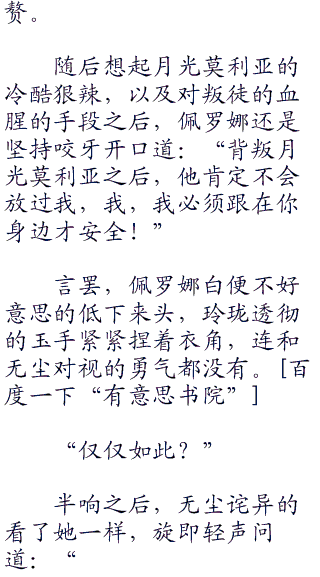 赘。
随后想起月光莫利亚的
冷酷狠辣，以及对叛徒的血
腥的手段之后，佩罗娜还是
坚持咬牙开口道：“背叛月
光莫利亚之后，他肯定不会
放过我，我，我必须跟在你
身边才安全！”
言罢，佩罗娜白便不好
意思的低下来头，玲珑透彻
的玉手紧紧捏着衣角，连和
无尘对视的勇气都没有。[百
度一下“有意思书院”]
“仅仅如此？”
半响之后，无尘诧异的
看了她一样，旋即轻声问
道：“